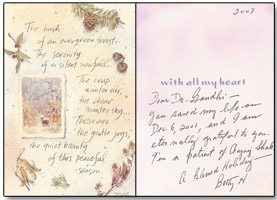 The hush
of an evergreen forest...
The serenity
of a silent snowfall...
The crisp
winter air,
the clear
winter sky...
These are
the gentle joys,
the quiet beauty
of this peaceful
season.
2007
with all my heart
Dear Dr. Gandhi—
you saved my life on
Dec 6, 2001, and I am
eternally grateful to you.
I'm a patient of
A Blessed Holiday—
Betty H